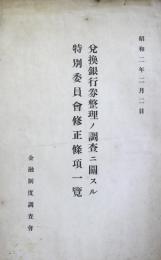 昭和二年二月二日
兌換銀行券整理ノ調査ニ關スル
特別委員會修正條項一覽
金融制度調査會